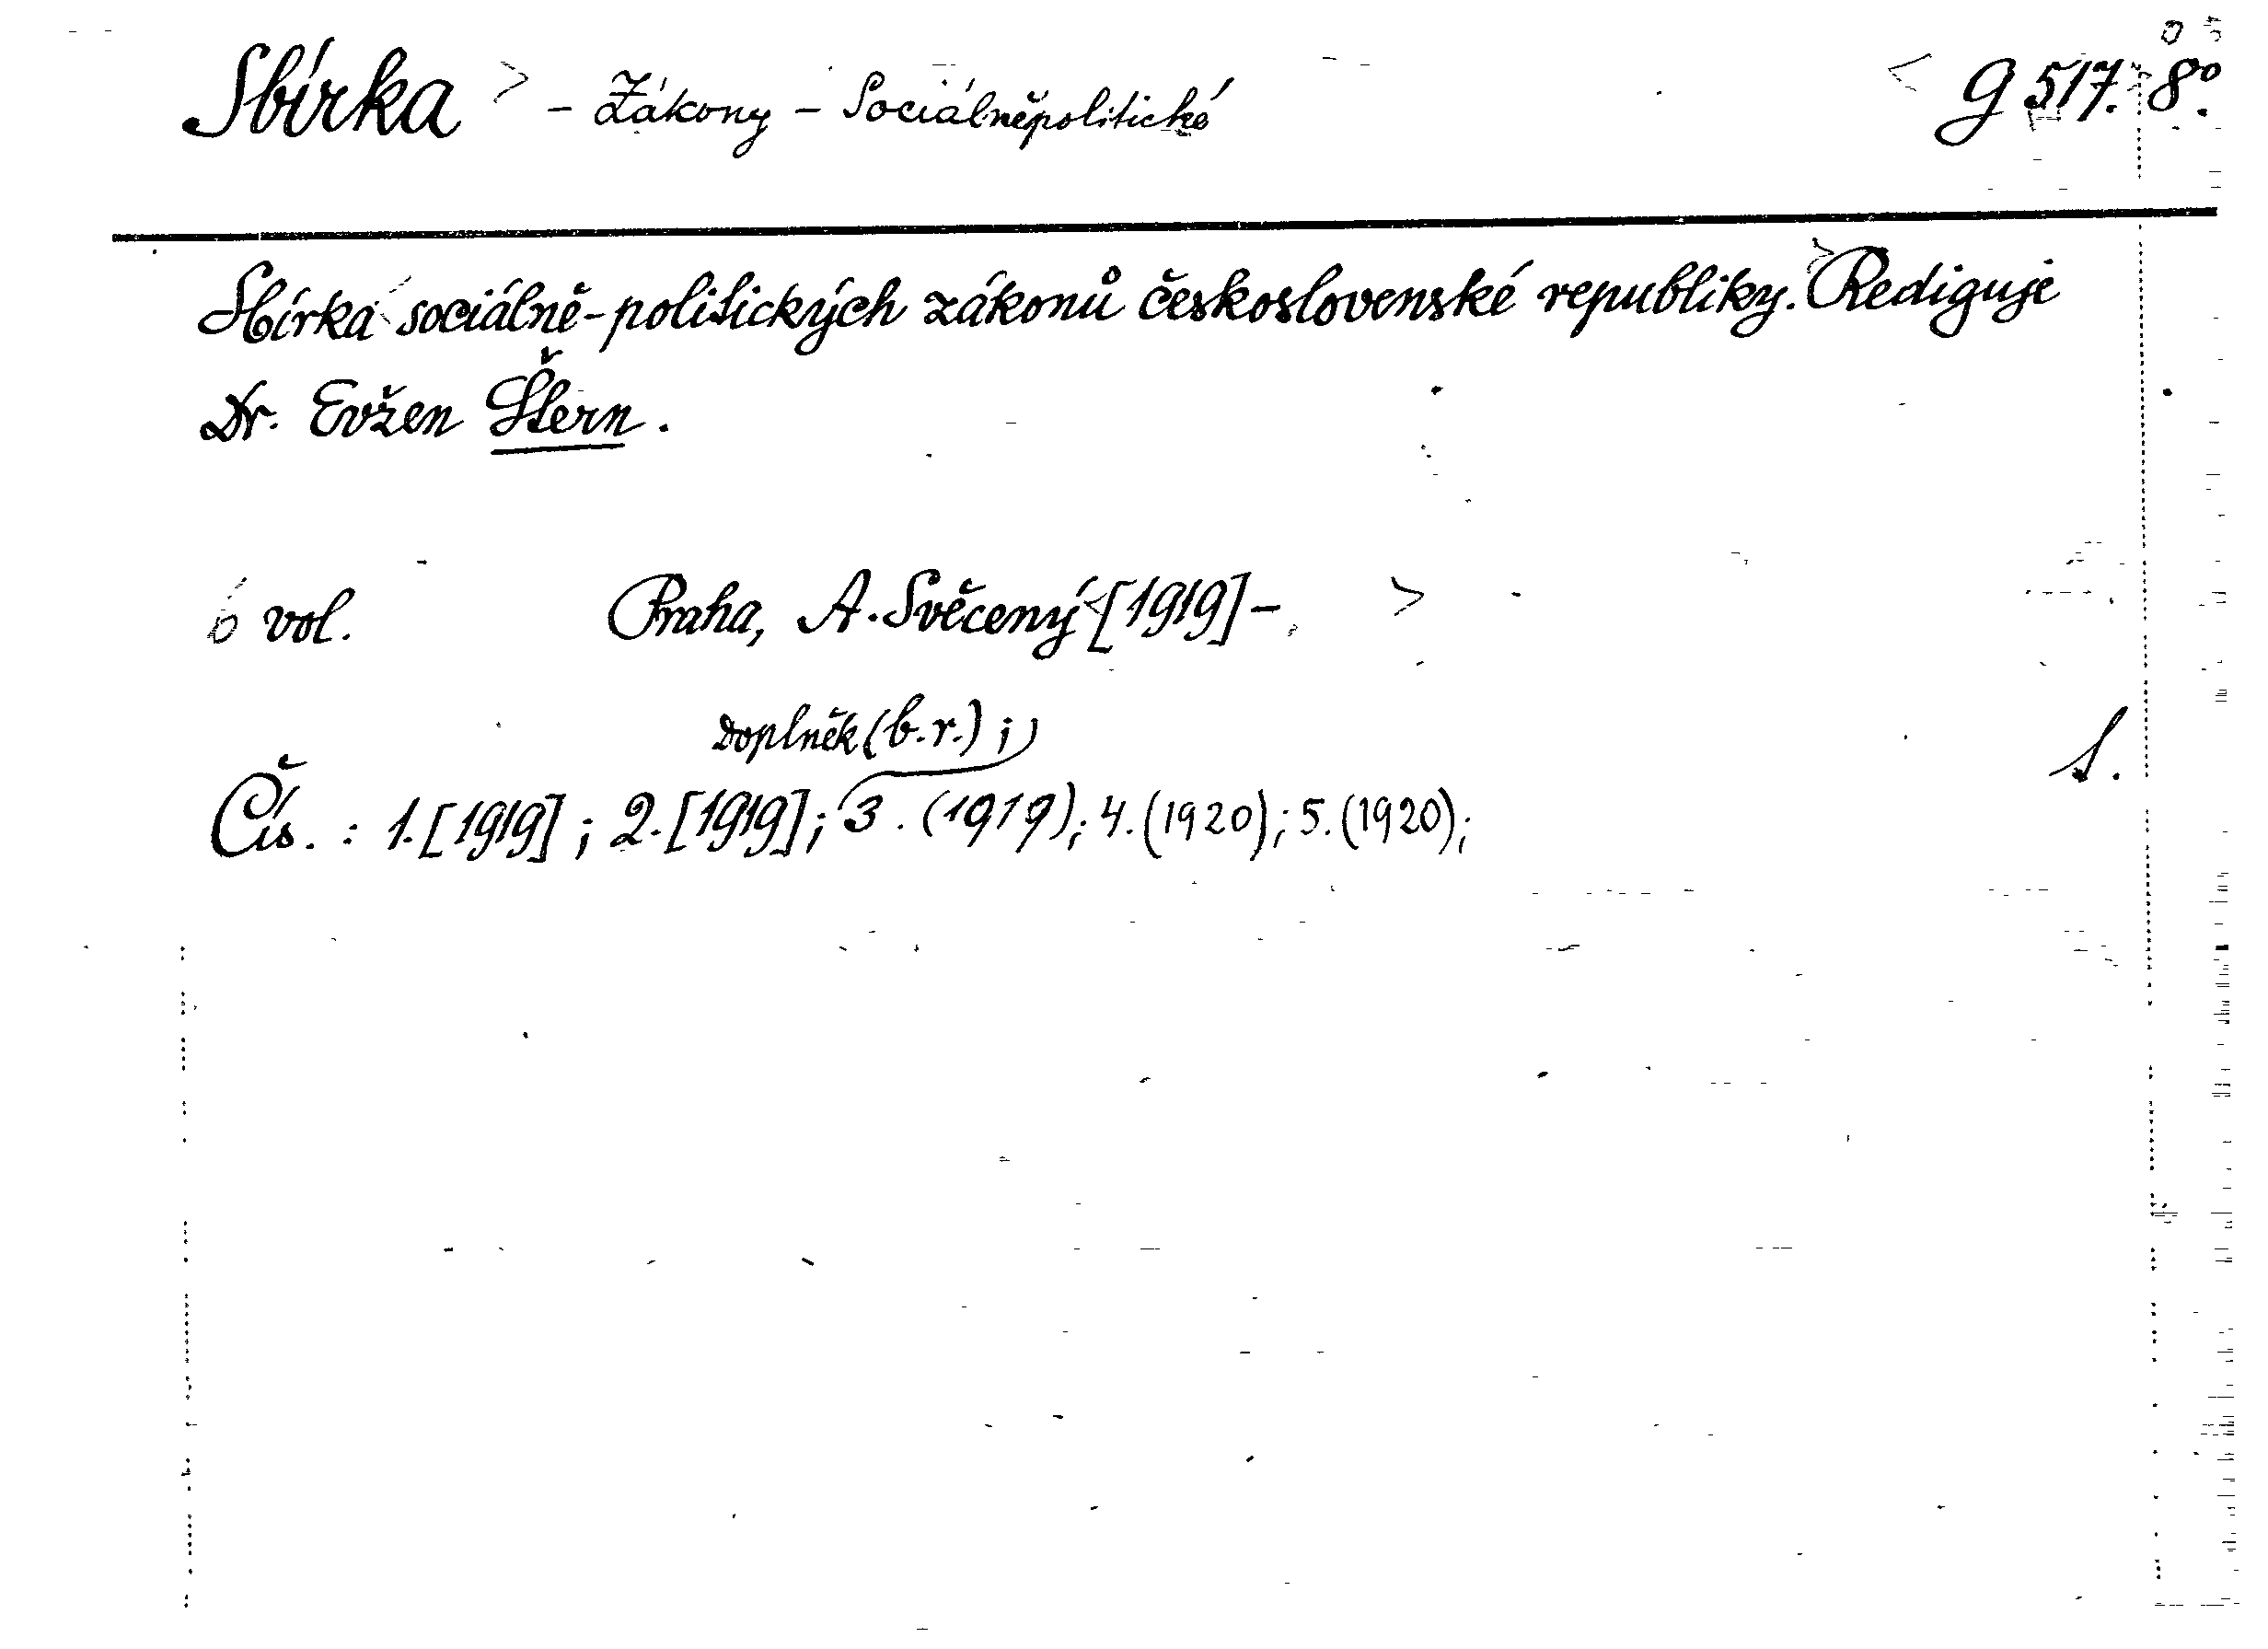 Sbírka - Zákony - Sociálněpolitické G 517. 8º.
Sbírka sociálně-politických zákonů československé republiky. Rediguje
Dr. Evžen Štern.
6 vol. Praha, A. Svěcený [1919] -
Doplněk (b.r.);
S.
Čís. : 1. [1919] ; 2. [1919] ; 3. (1919); 4. (1920); 5. (1920);